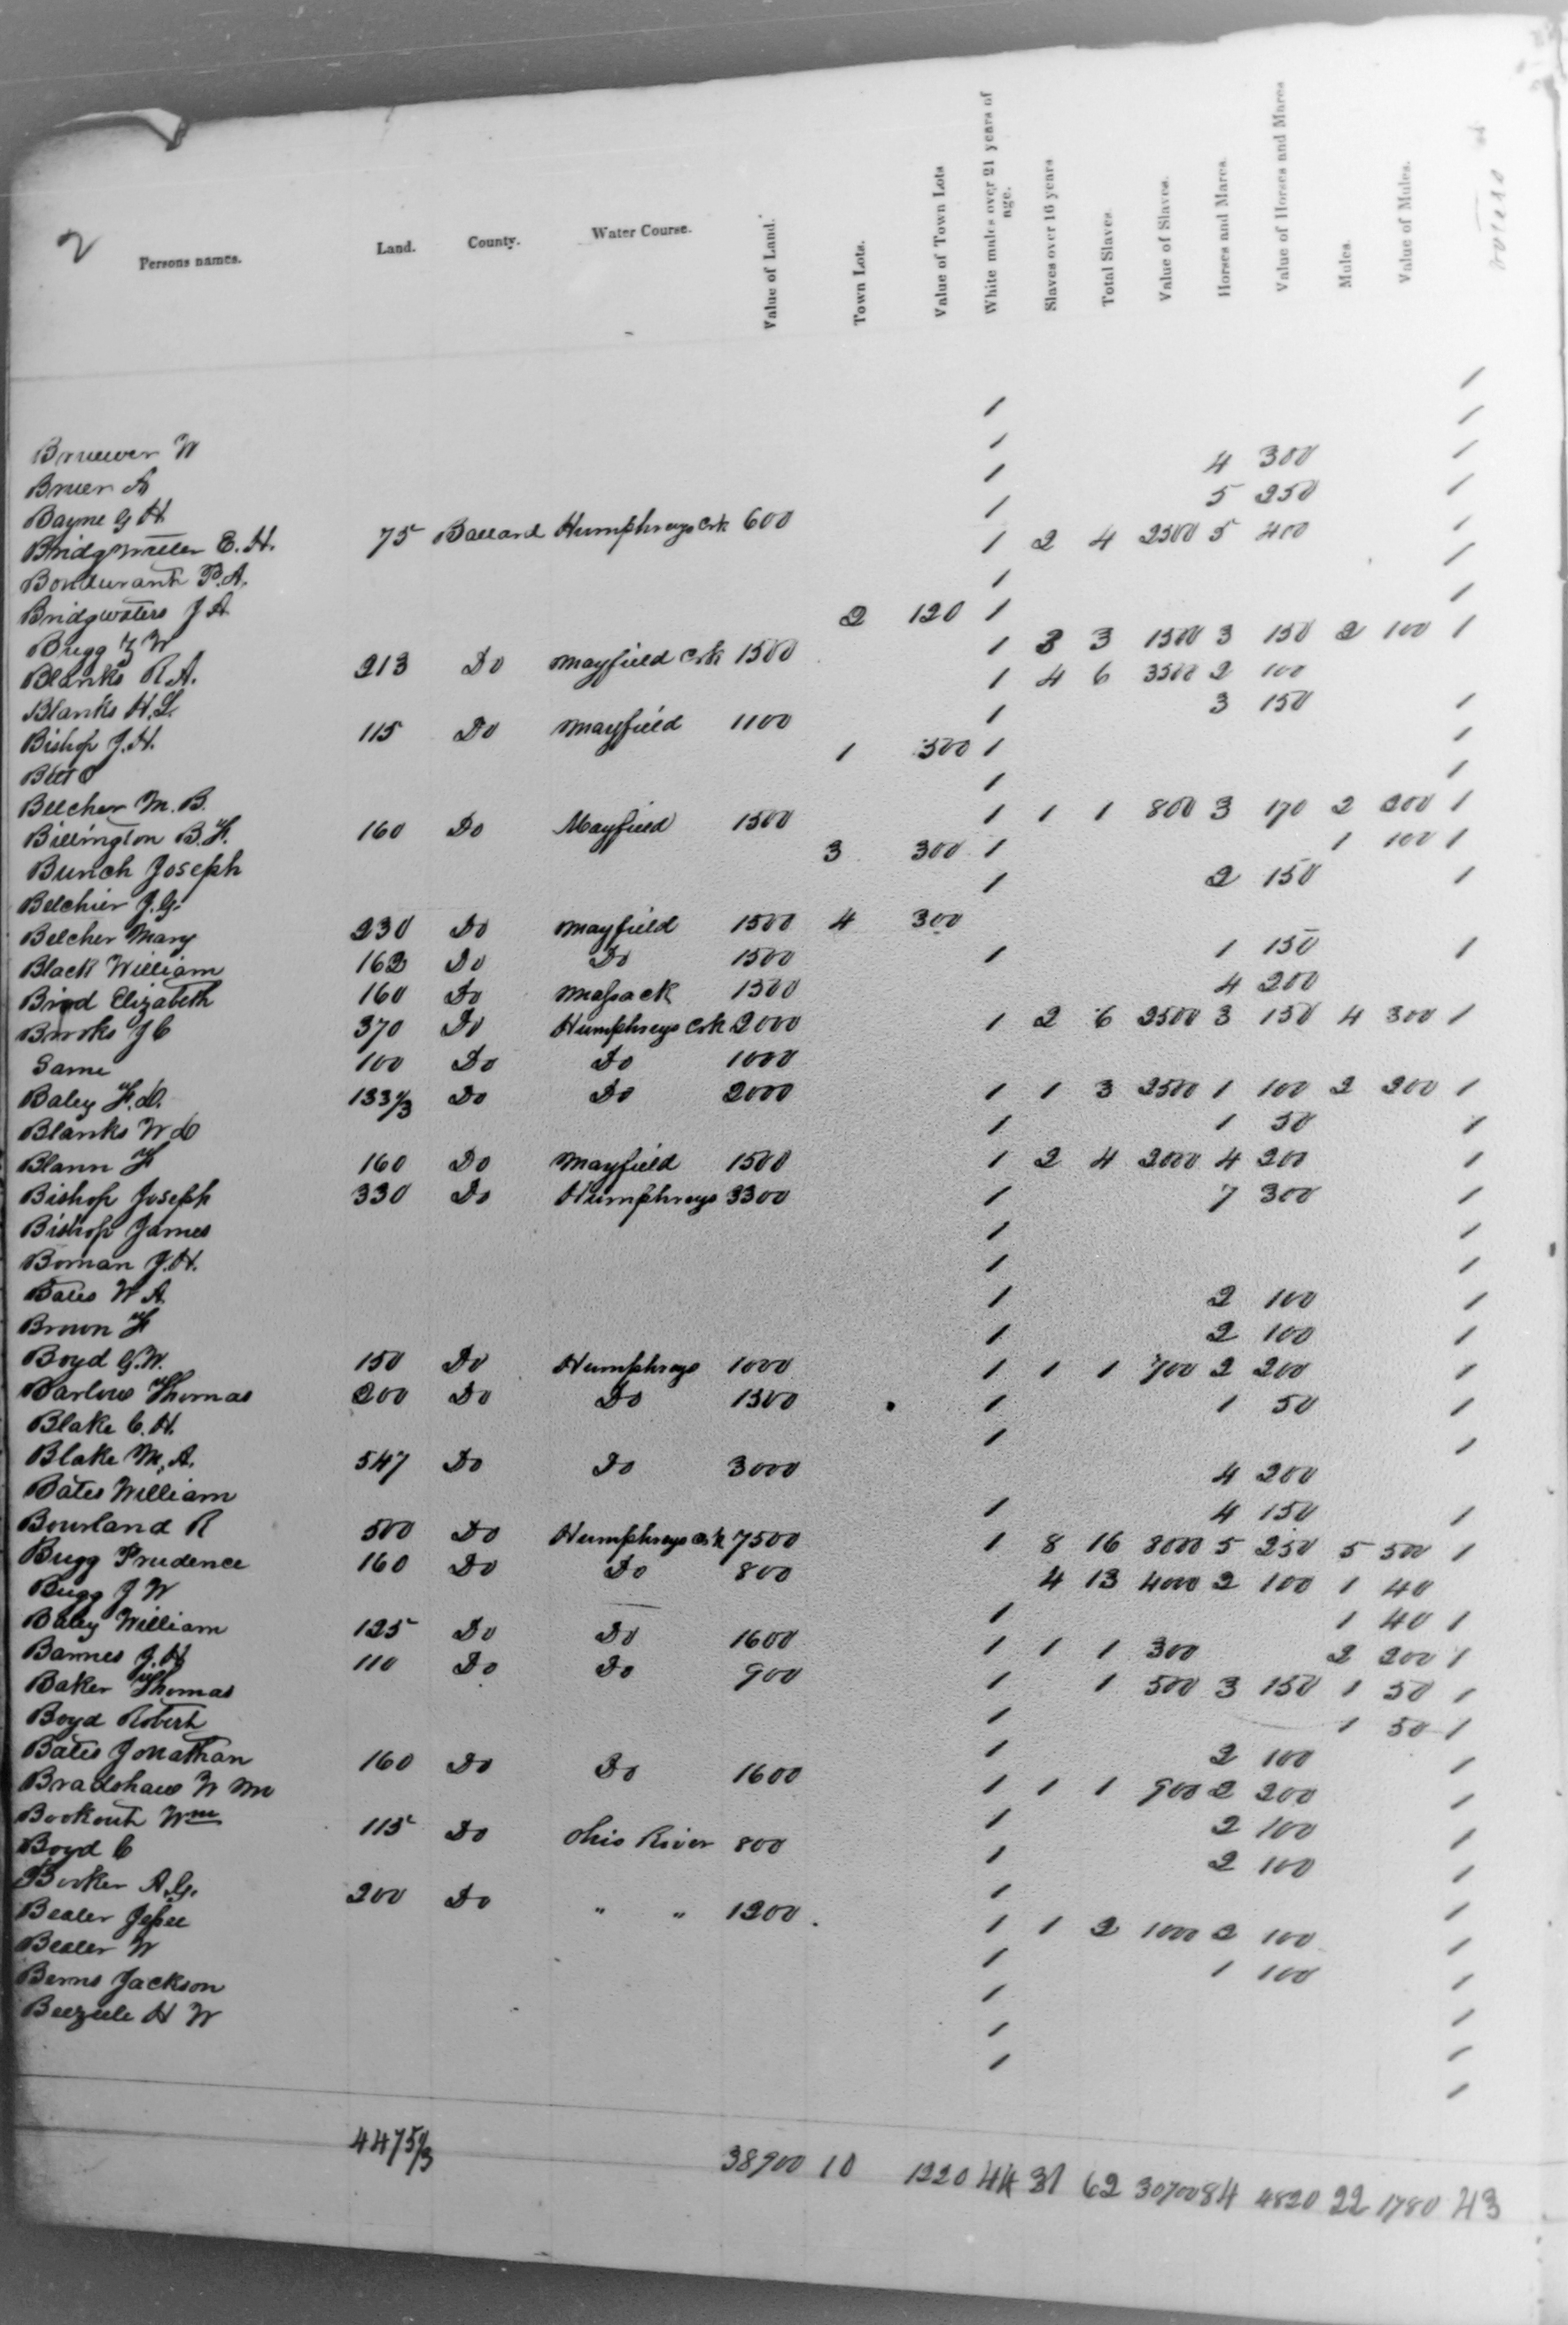 2
Persons names. Land. County. Water Course. Value of Land. Town Lots. Value of Town Lots White males over 21 years of age. Slaves over 16 years Total Slaves. Value of Slaves. Horses and Mares. Value of Horses and Mares Mules. Value of Mules.
Bruewer W 1 1
Bruer A 1 1
Bayne G H 1 4 300 1
Bridgwater E. H. 75 Ballard Humphreys Crk 600 1 5 250 1
Bondurant P. A. 1 2 4 2300 5 400 1
Bridgwaters J A 1 1
Bugg Z W 2 120 1 1
Blanks R A. 213 Do Mayfield Crk 1500 1 3 3 1500 3 150 2 100 1
Blanks H. L. 1 4 6 3500 2 100
Bishop J. H. 115 Do Mayfield 1100 1 3 150 1
Bell C 1 500 1 1
Belcher M. B. 1 1
Billington B. F. 160 Do Mayfield 1500 1 1 1 800 3 170 2 200 1
Bunch Joseph 3 300 1 1 100 1
Belchier J. G. 1 2 150 1
Belcher Mary 230 Do Mayfield 1500 4 300
Black William 162 Do Do 1500 1 1 150 1
Bird Elizabeth 160 Do Massack 1300 4 200
Brooks J C 370 Do Humphreys Crk 2000 1 2 6 2500 3 150 4 300 1
Same 100 Do Do 1000
Baley F. D. 133 1/3 Do Do 2000 1 1 3 2500 1 100 2 200 1
Blanks W D 1 1 50 1
Blann F 160 Do Mayfield 1500 1 2 4 2000 4 200 1
Bishop Joseph 330 Do Humphreys 3300 1 7 300 1
Bishop James 1 1
Boman J. H. 1 1
Bates W A. 1 2 100 1
Brown F 1 2 100 1
Boyd G. W. 150 Do Humphreys 1000 1 1 1 700 2 200 1
Barlow Thomas 200 Do Do 1300 1 1 50 1
Blake C. H. 1 1
Blake M. A. 547 Do Do 3000 4 200
Bates William 1 4 150 1
Bourland R 500 Do Humphreys Crk 7500 1 8 16 8000 5 250 5 500 1
Bugg Prudence 160 Do Do 800 4 13 4000 2 100 1 40
Bugg J W 1 1 40 1
Baley William 125 Do Do 1600 1 1 1 300 2 200 1
Barnes J. H 110 Do Do 900 1 1 500 3 150 1 50 1
Baker Thomas 1 1 50 1
Boyd Robert 1 2 100 1
Bates Jonathan 160 Do Do 1600 1 1 1 900 2 200 1
Bradshaw W M 1 2 100 1
Bookout Wm 115 Do Ohio River 800 1 2 100 1
Boyd C 1 1
Booker A. G. 200 Do " " 1200 1 1 2 1000 2 100 1
Bealer Jesse 1 1 100 1
Bealer W 1 1
Berns Jackson 1 1
H W 1 1
4475 1/3 38900 10 1220 44 31 62 30700 84 4820 22 1780 43